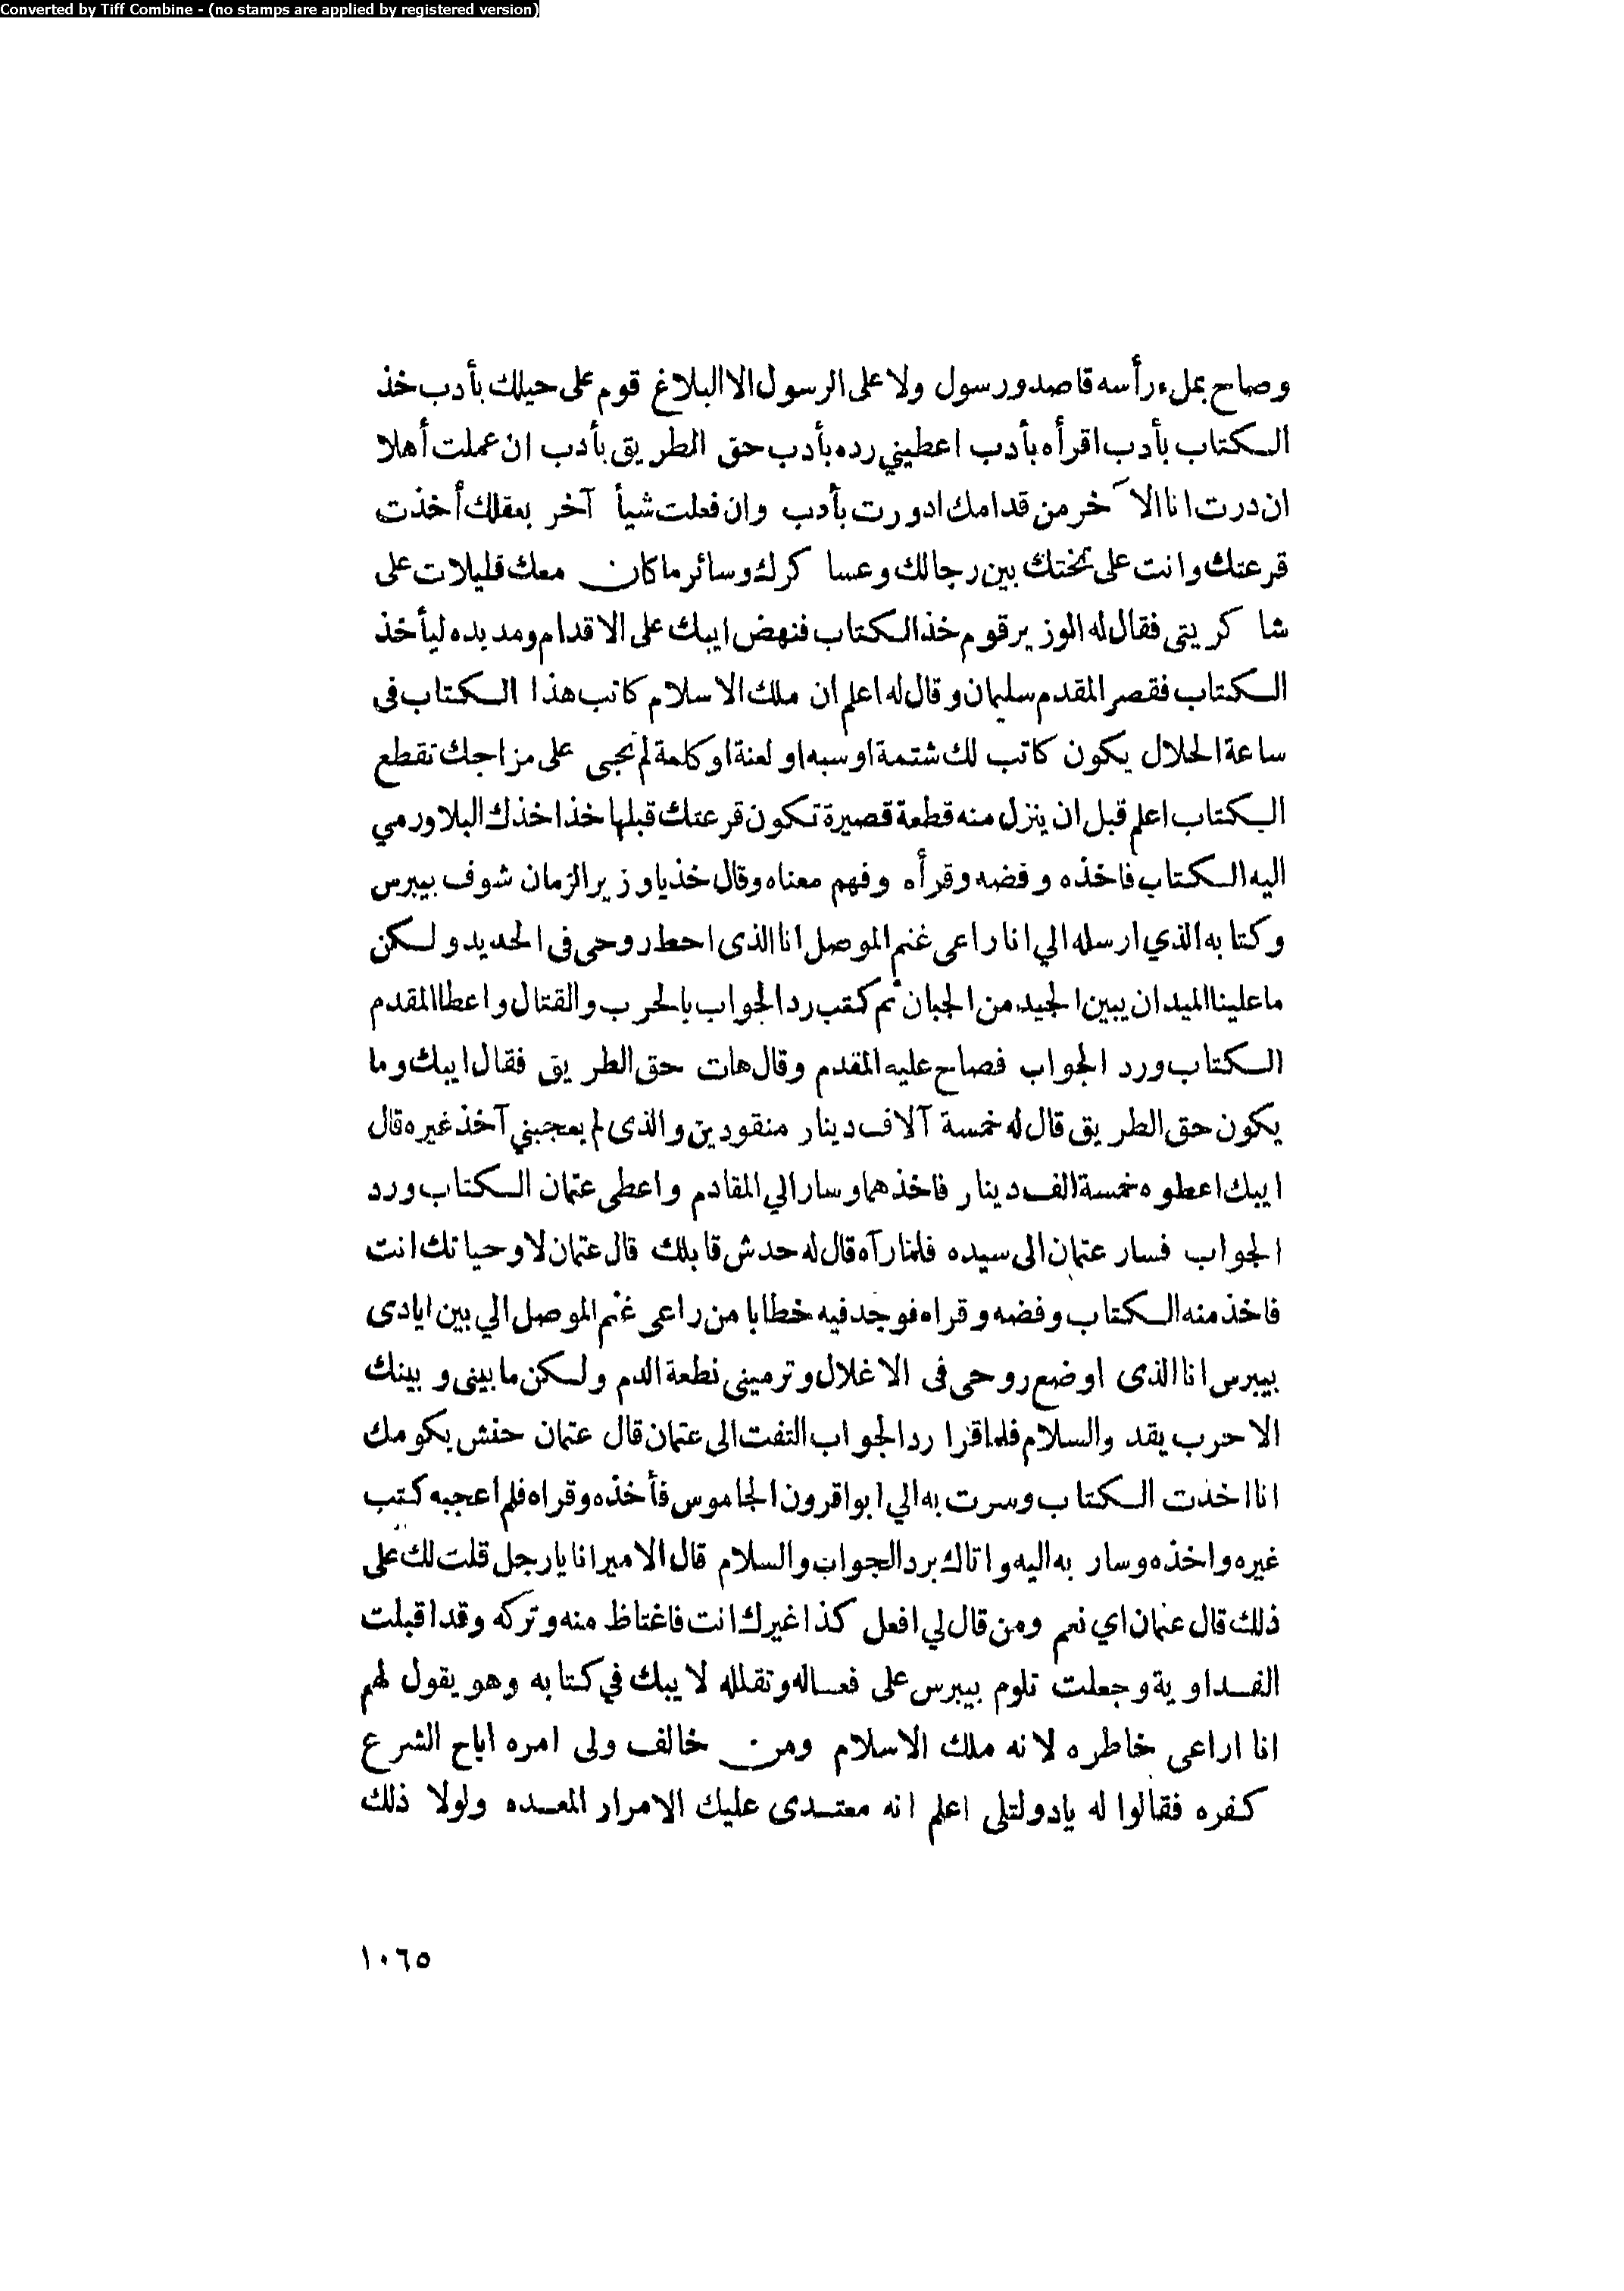 Converted by Tiff Combine - (no stamps are applied by registered version)
وصاح بملء رأسه قاصد ورسول ولا على الرسول الا البلاغ قوم على حيلك بأدب خذ
الكتاب بأدب اقرأه بأدب اعطيني رده بأدب حق الطريق بأدب ان عملت أهلا
ان درت انا الآخر من قدامك ادورت بأدب وان فعلت شيأ آخر بعقلك أخذت
قرعتك وانت على تختك بين رجالك وعساكرك وسائر ما كان معك قليلات على
شاكريتى فقال له الوزير قوم خذ الكتاب فنهض ايبك على الاقدام ومد يده ليأخذ
الكتاب فقصر المقدم سليمان وقال له اعلم ان ملك الاسلام كاتب هذا الكتاب فى
ساعة الحلال يكون كاتب لك شتمة او سبه او لعنة او كلمة لم تجى على مزاجك تقطع
الكتاب اعلم قبل ان ينزل منه قطعة قصيرة تكون قرعتك قبلها خذ اخذك البلا ورمي
اليه الكتاب فاخذه وفضه وقرأه وفهم معناه وقال خذ ياوزير الزمان شوف بيبرس
وكتابه الذي ارسله الي انا راعى غنم الموصل انا الذى احط روحى فى الحديد ولكن
ما علينا الميدان يبين الجيد من الجبان ثم كتب رد الجواب بالحرب والقتال واعطا المقدم
الكتاب ورد الجواب فصاح عليه المقدم وقال هات حق الطريق فقال ايبك وما
يكون حق الطريق قال له خمسة آلاف دينار منقودين والذى لم يعجبني آخذ غيره قال
ايبك اعطوه خمسة الف دينار فاخذهما وسار الي المقادم واعطى عتمان الكتاب ورد
الجواب فسار عتمان الى سيده فلما رآه قال له حدش قابلك قال عتمان لا وحياتك انت
فاخذ منه الكتاب وفضه وقراه فوجد فيه خطابا من راعى غنم الموصل الي بين ايادى
بيبرس انا الذى اوضع روحى فى الاغلال وترمينى نطعة الدم ولكن ما بينى وبينك
الا حرب يقد والسلام فلما قرا رد الجواب التفت الى عتمان قال عتمان حنش يكومك
انا اخذت الكتاب وسرت به الي ابو اقرون الجاموس فأخذه وقراه فلم اعجبه كتب
غيره واخذه وسار به اليه واتاك برد الجواب والسلام قال الامير انا يارجل قلت لك على
ذلك قال عتمان اي نعم ومن قال لي افعل كذا غيرك انت فاغتاظ منه وتركه وقد اقبلت
الفداوية وجعلت تلوم بيبرس على فعاله وتقلله لايبك في كتابه وهو يقول لهم
انا اراعى خاطره لانه ملك الاسلام ومن خالف ولى امره اباح الشرع
كفره فقالوا له يادولتلى اعلم انه معتدى عليك الامرار المعده ولولا ذلك
١٠٦٥